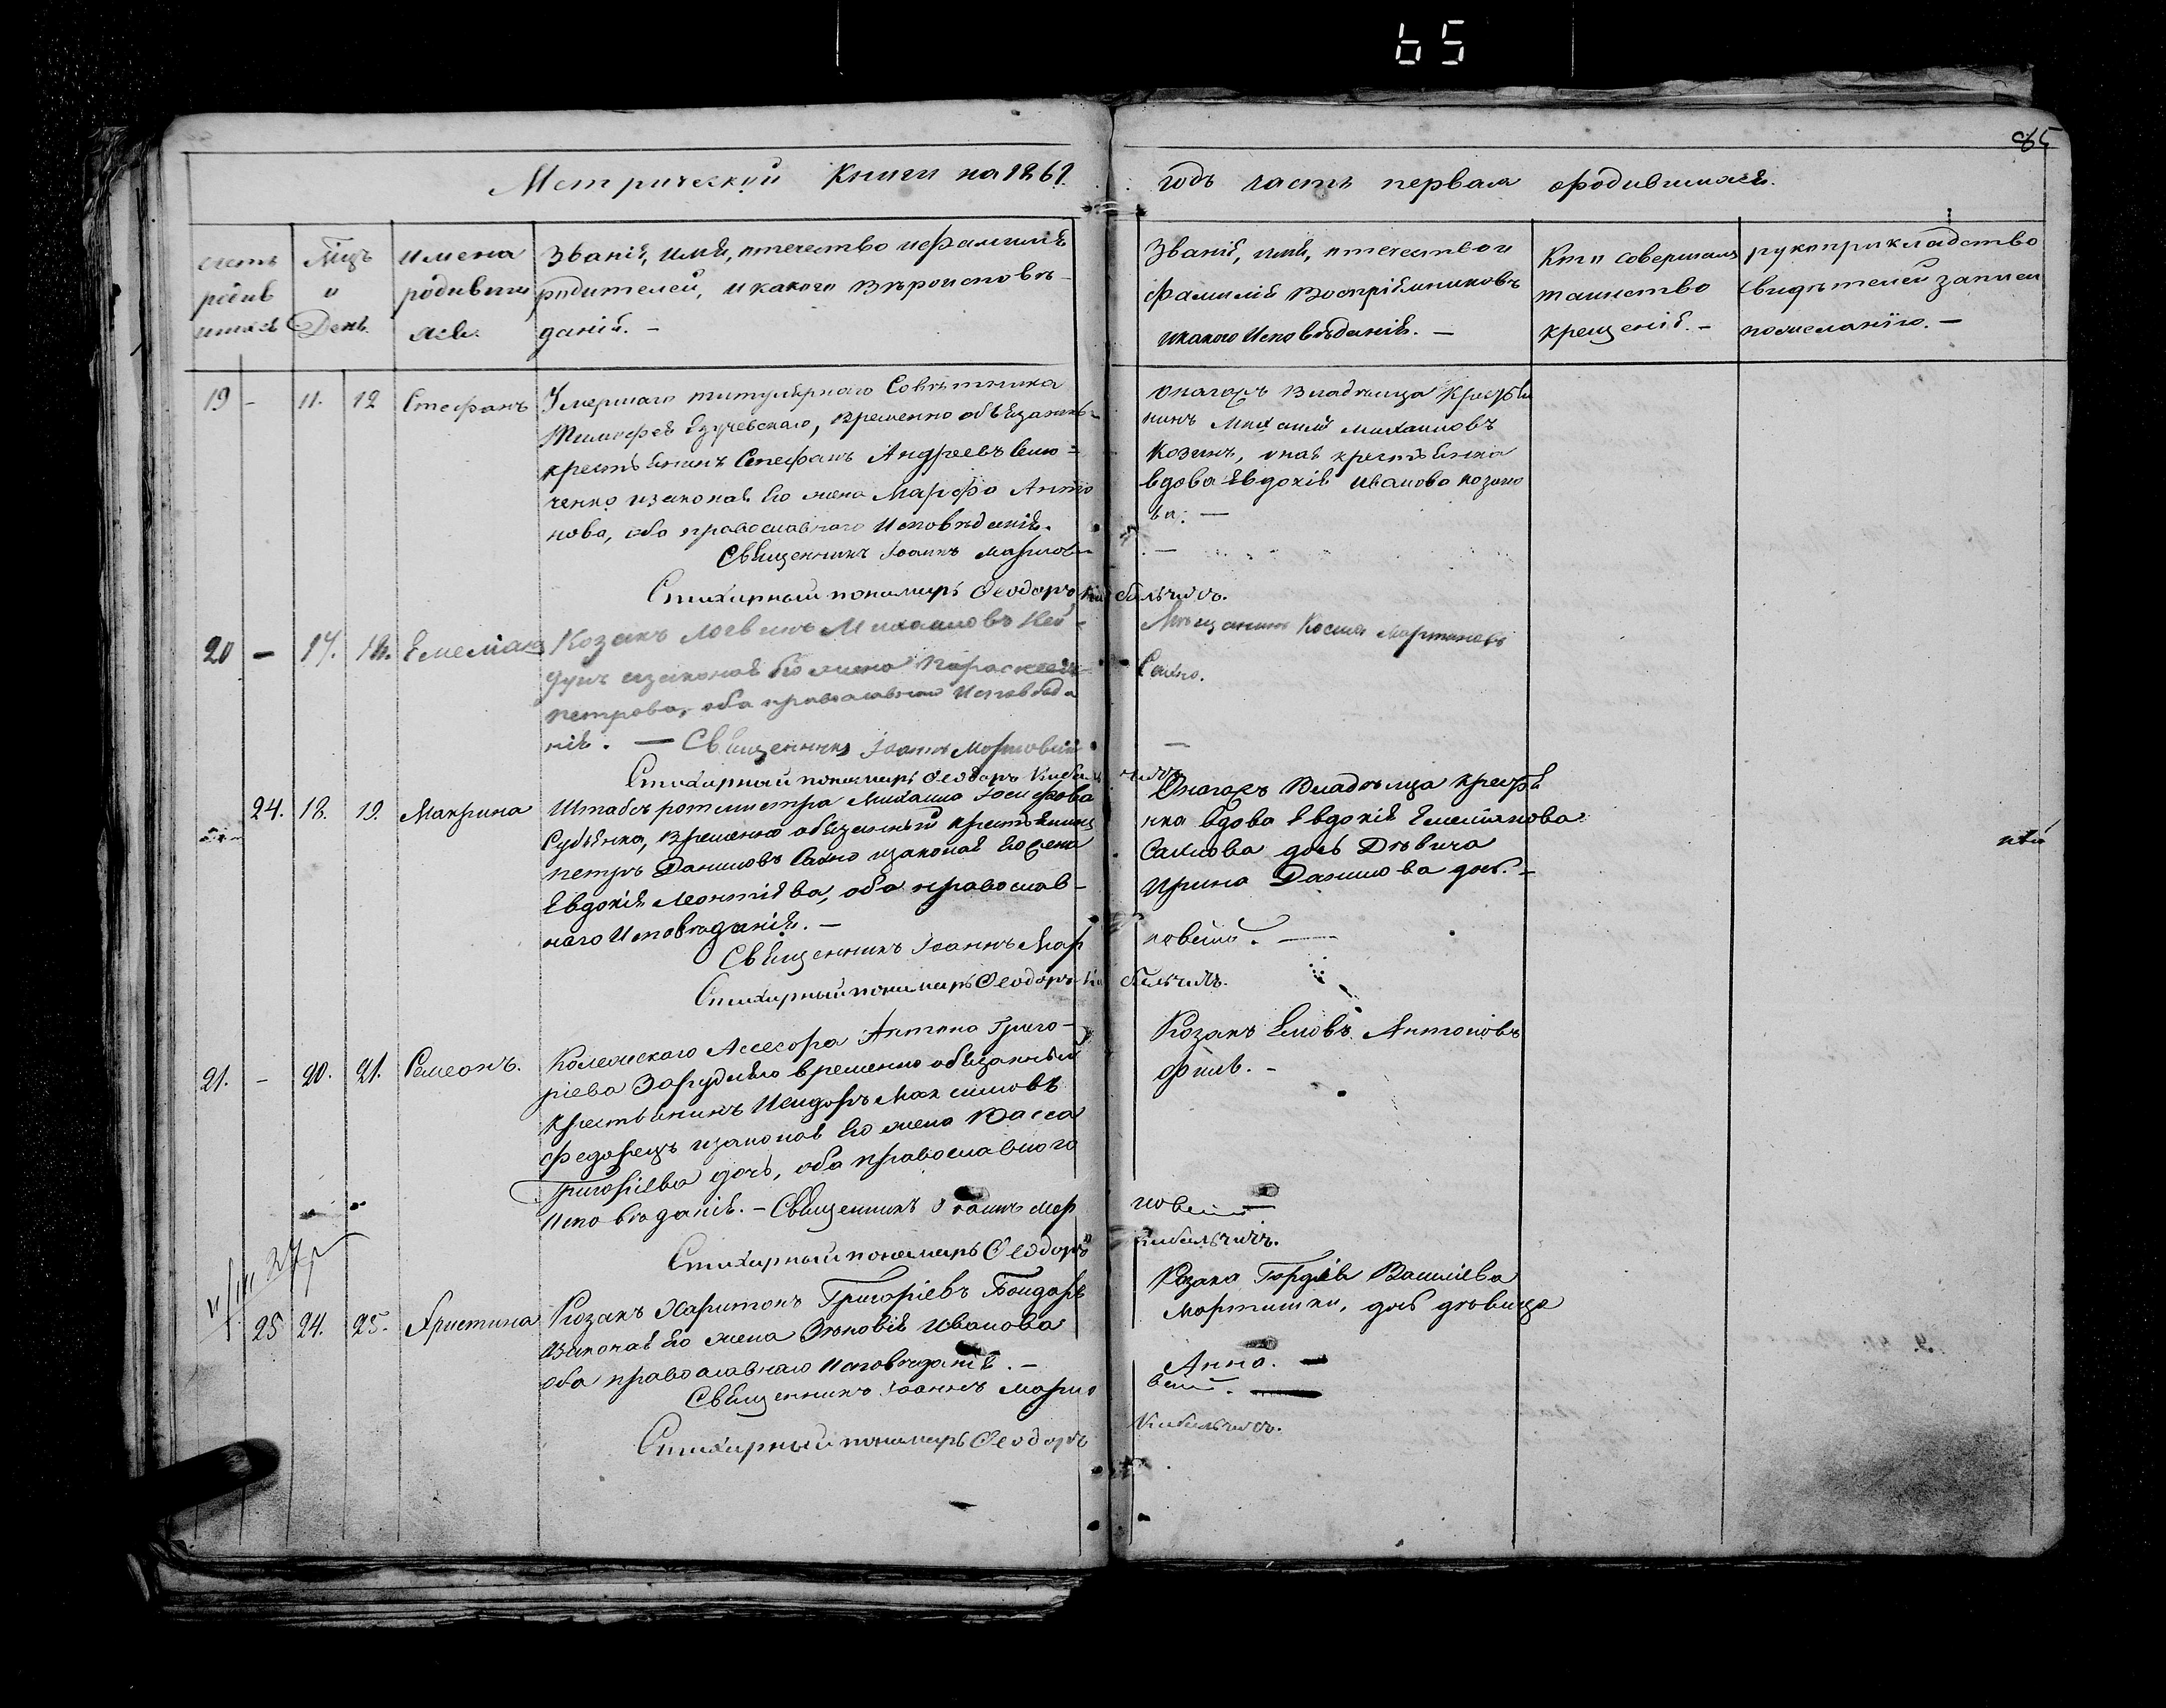 65
85
Метрической Книги на 1861.
годъ часть первая о родившихся.
счетъ
родив
шихся
Мцъ
и
День.
имена
родивши
хся.
Званіе, имя, отечество и фамилія
родителей, и какого вѣроисповѣ-
данія. —
Званіе, имя, отечество и
фамилія Воспріемниковъ
и какого Исповѣданія. —
Кто совершалъ
таинство
крещенія. —
рукоприкладство
свидѣтелей записи
по желанію. —
19 - 11. 12 Стефанъ
Умершаго титулярнаго Совѣтника
Тимофея, временно обязанный
крестьянинъ Стефанъ Андреевъ
и законная его жена Марфа Анто
нова, оба православнаго Исповѣданія.
Священникъ Іоаннъ
Стихарный пономарь Феодоръ Кибальчичъ.
Онагожъ Владѣльца Крестья
нинъ Михаилъ Михаиловъ
Козинъ, и крестьянка
вдова Евдокія Иванова Козино
ва. —
20 — 17. 18. Емеліанъ
Козакъ Логвинъ Михаиловъ
и законная его жена Параскева
Петрова, оба православнаго Исповѣда
нія. — Священникъ Іоаннъ
Стихарный пономарь Феодоръ Кибальчичъ.
Мѣщанинъ Косма Мартиновъ
Сахно.
24. 18. 19. Макрина
Штабсъ ротмистра Михаила Іосифова
Судьенка, временно обязанный крестьянинъ
Петръ Даниловъ Сахно и законная его жена
Евдокія Леонтіева, оба православ-
наго Исповѣданія. —
Священникъ Іоаннъ
Стихарный пономарь Феодоръ Кибальчичъ.
Онагожъ Владѣльца крестья
нка вдова Евдокія Емеліанова
Сахнова дочь Дѣвица
Ирина Данилова дочь. —
21. - 20. 21. Симеонъ.
Колежскаго Ассесора Антона Григо-
ріева временно обязанный
крестьянинъ Исидоръ Максимовъ
Федорецъ и законная его жена Васса
Григоріева дочь, оба православнаго
Исповѣданія. — Священникъ Іоаннъ
Стихарный пономарь Феодоръ Кибальчичъ.
Козакъ Іовъ Антоновъ
25 24. 25. Христина
Козакъ Харитонъ Григоріевъ Бондарь
и законная его жена Зѣновія Иванова
оба православнаго Исповѣданія. —
Священникъ Іоаннъ
Стихарный пономарь Феодоръ Кибальчичъ.
Козака Гордѣя Василіева
Мартишки, дочь дѣвица
Анна. —